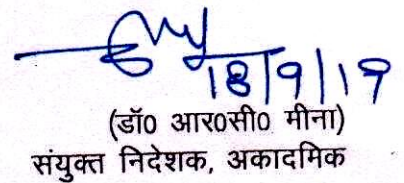 18/9/19
(डॉ0 आर0सी0 मीना)
संयुक्त निदेशक, अकादमिक